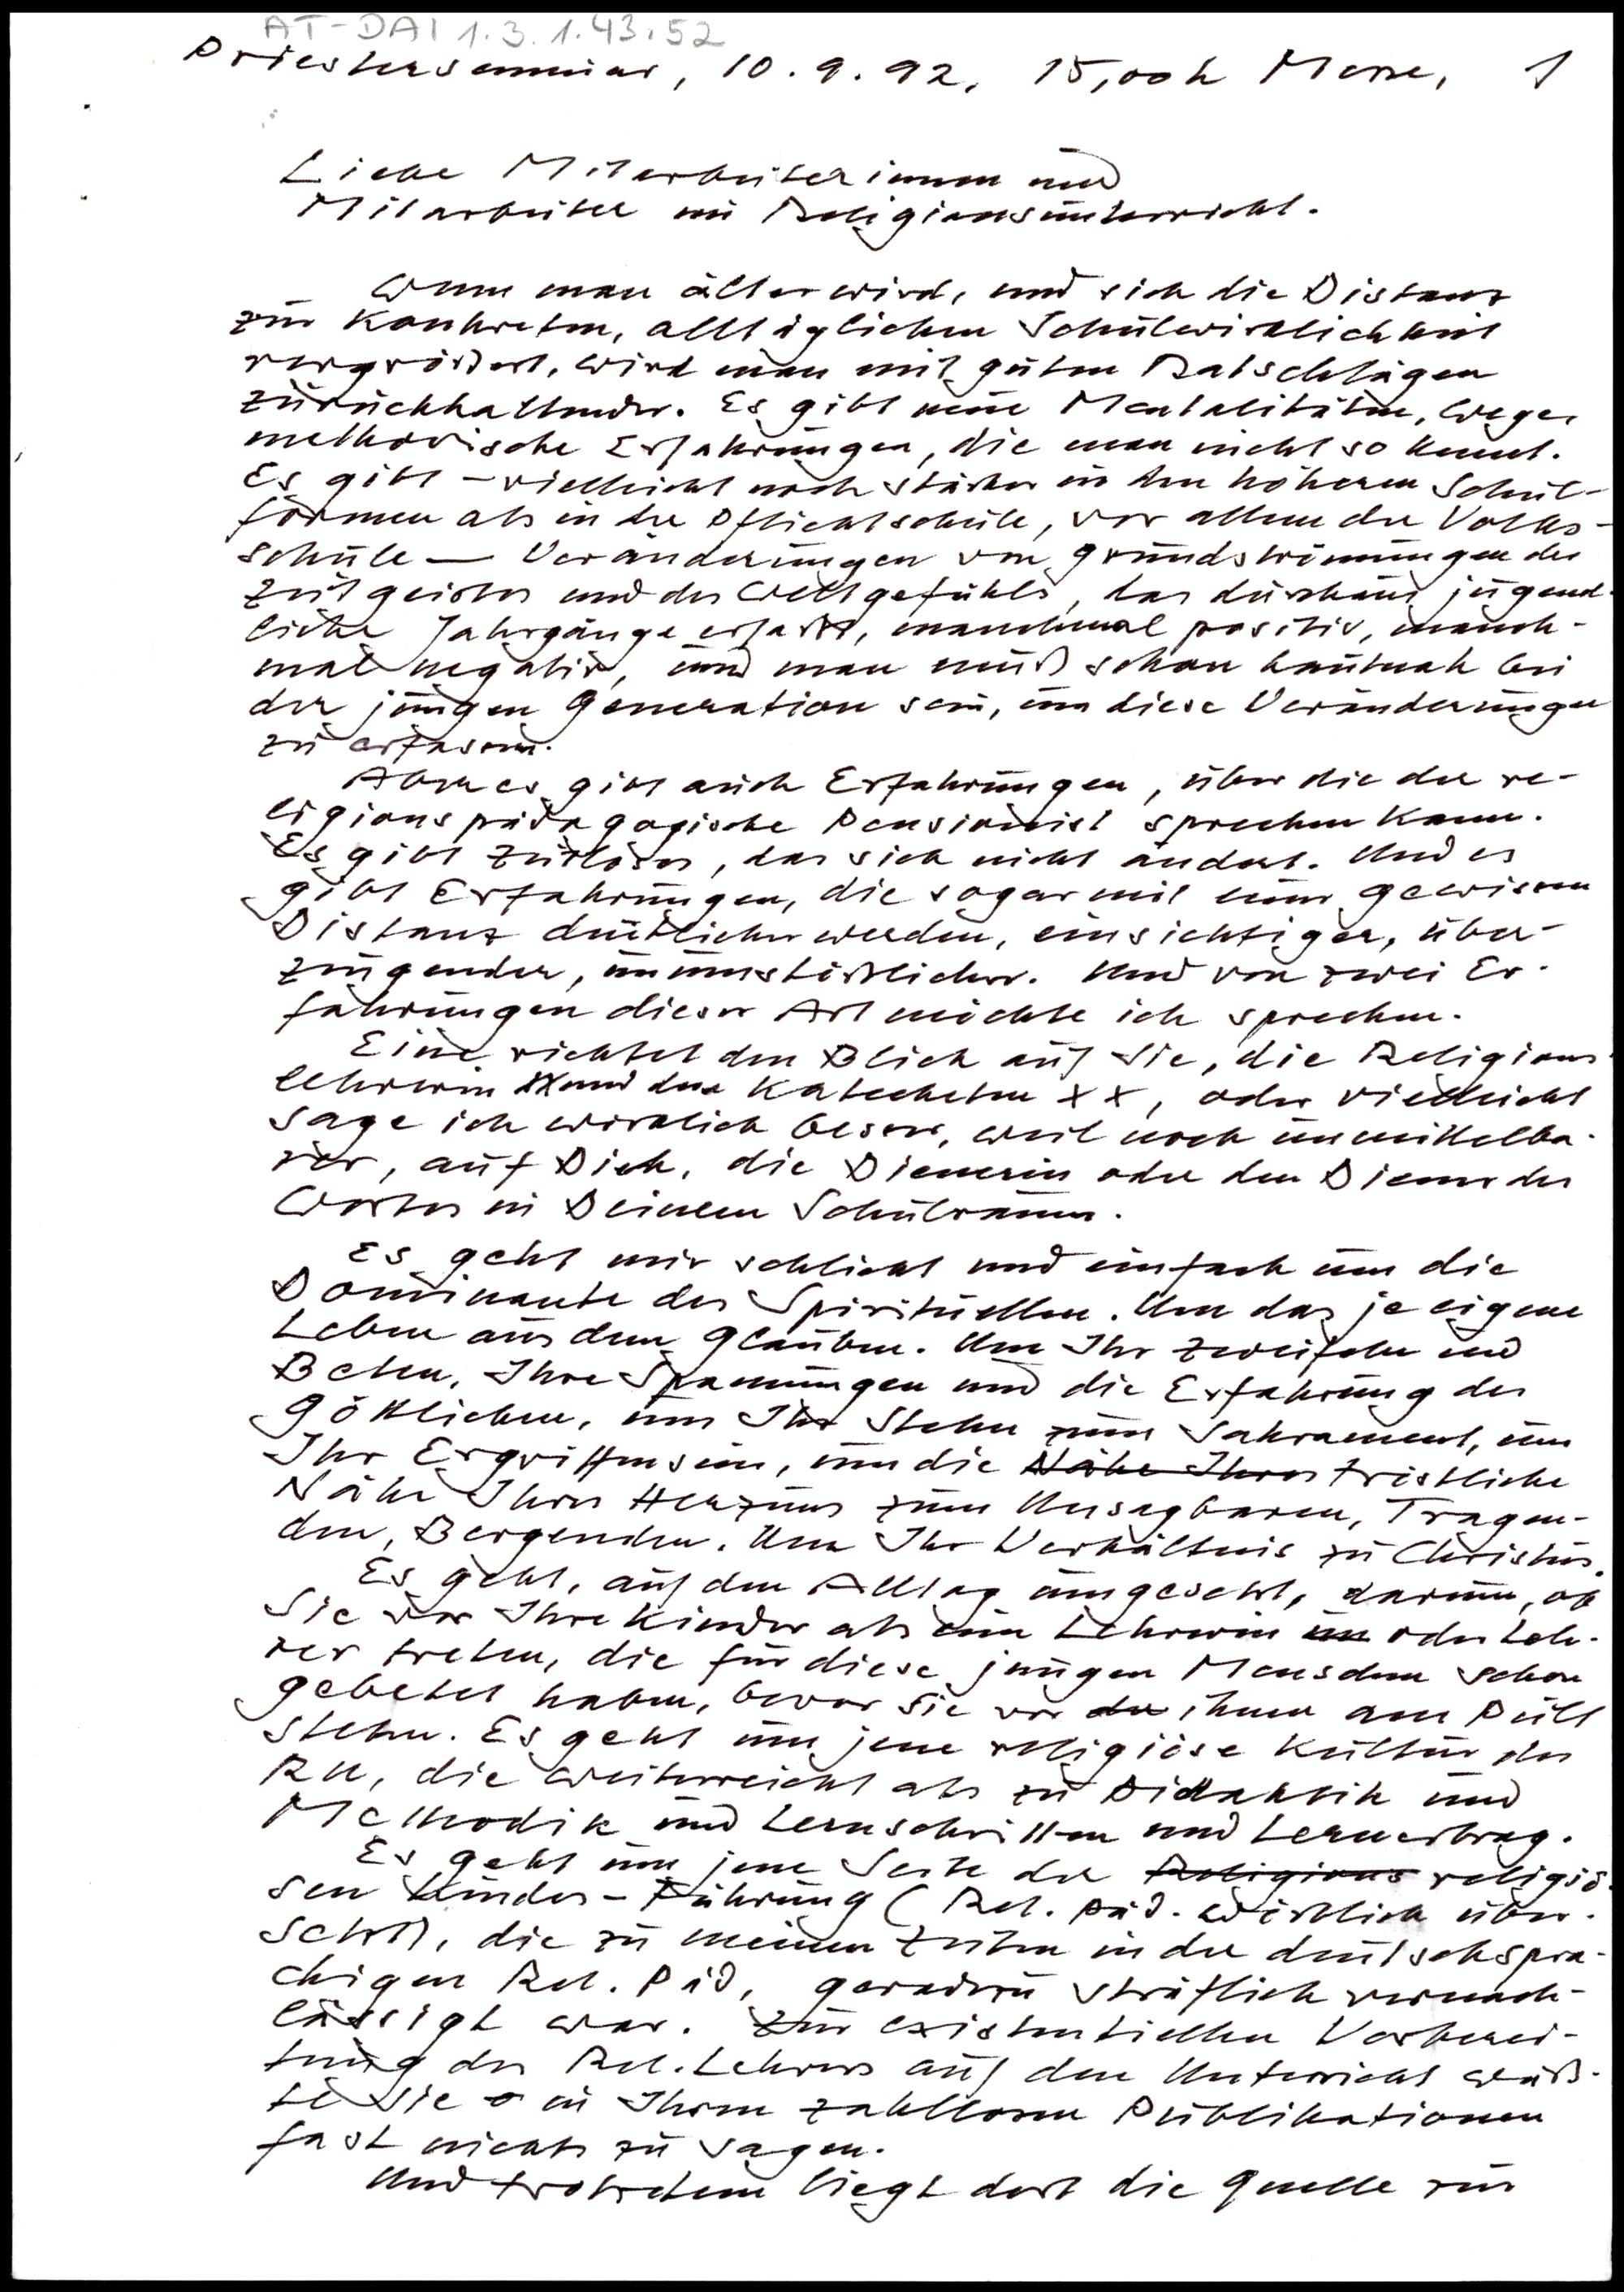 AT-DAI 1.3.1.43.52
Priesterseminar, 10.9.92, 15,00h Messe, 1
Liebe Mitarbeiterinnen und
Mitarbeiter im Religionsunterricht.
Wenn man älter wird, und sich die Distanz
zur konkreten, alltäglichen Schulwirklichkeit
vergrößert, wird man mit guten Ratschlägen
zurückhaltender. Es gibt neue Mentalitäten, Wege,
methodische Erfahrungen, die man nicht so kennt.
Es gibt - vielleicht noch stärker in den höheren Schul-
formen als in der Pflichtschule, vor allem der Volks-
schule — Veränderungen von Grundströmungen des
Zeitgeistes und des Weltgefühls, das durchaus jugend-
liche Jahrgänge erfaßt, manchmal positiv, manch-
mal negativ, und man muß schon hautnah bei
der jungen Generation sein, um diese Veränderungen
zu erfassen.
Aber es gibt auch Erfahrungen, über die der re-
ligionspädagogische Pensionist sprechen kann.
Es gibt Zeitloses, das sich nicht ändert. Und es
gibt Erfahrungen, die sogar mit einer gewissen
Distanz deutlicher werden, einsichtiger, über-
zeugender, unumstößlicher. Und von zwei Er-
fahrungen dieser Art möchte ich sprechen.
Eine richtet den Blick auf Sie, die Religions-
lehrerin XX und den Katecheten XX, oder vielleicht
sage ich wirklich besser, weil noch unmittelba-
rer, auf Dich, die Dienerin oder den Diener des
Wortes in Deinem Schulraum.
Es geht mir schlicht und einfach um die
Dominante des Spirituellen. Um das je eigene
Leben aus dem Glauben. Um Ihr Zweifeln und
Beten, Ihre Spannungen und die Erfahrung des
Göttlichen, um Ihr Stehen zum Sakrament, um
Ihr Ergriffensein, um die Nähe Ihres
Nähe Ihres Herzens zum Unsagbaren, Tragen-
den, Bergenden. Um Ihr Verhältnis zu Christus.
Es geht, auf den Alltag umgesetzt, darum, ob
Sie vor Ihre Kinder als eine Lehrerin oder Leh-
rer treten, die für diese jungen Menschen schon
gebetet haben, bevor Sie vor der ihnen am Pult
stehen. Es geht um jene religiöse Kultur des
RU, die weiterreicht als zu Didaktik und
Methodik und Lernschritten und Lernertrag.
Es geht um jene Seite der Religions religiö-
sen Kinder-Führung (Rel. Päd. wörtlich über-
setzt), die zu meinen Zeiten in der deutschspra-
chigen Rel. Päd. geradezu sträflich vernach-
lässigt war. Zur existentiellen Vorberei-
tung des Rel. Lehrers auf den Unterricht wuß-
te Sie in Ihren zahllosen Publikationen
fast nichts zu sagen.
Und trotzdem liegt dort die Quelle zur